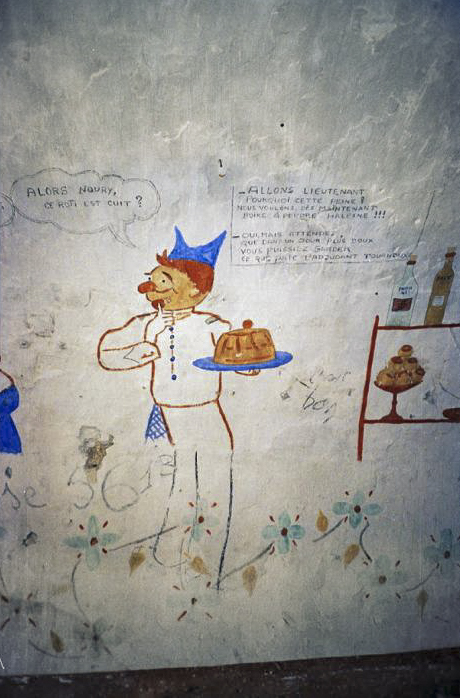 ALORS NOURY,
CE ROTI EST CUIT ?
_ ALLONS LIEUTENANT
POURQUOI CETTE PEINE !
NOUS VOULONS, DES MAINTENANT
BOIRE A PERDRE HALEINE !!!
_ OUI, MAIS ATTENDEZ,
QUE DANS UN JOUR PLUS DOUX
VOUS PUISSIEZ
CE QUE L'ADJUDANT
c'est
bon
se 5617